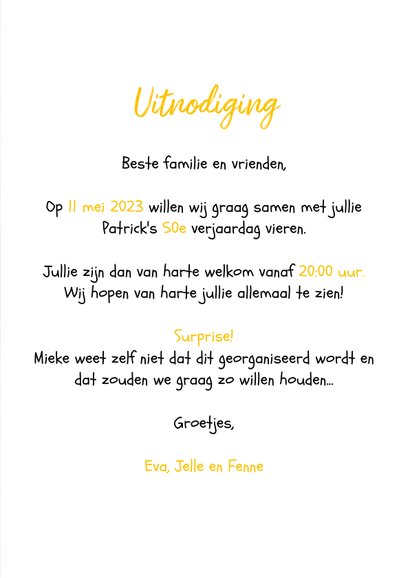 Uitnodiging
Beste familie en vrienden,
Op 11 mei 2023 willen wij graag samen met jullie
Patrick's 50e verjaardag vieren.
Jullie zijn dan van harte welkom vanaf 20:00 uur.
Wij hopen van harte jullie allemaal te zien!
Surprise!
Mieke weet zelf niet dat dit georganiseerd wordt en
dat zouden we graag zo willen houden...
Groetjes,
Eva, Jelle en Fenne